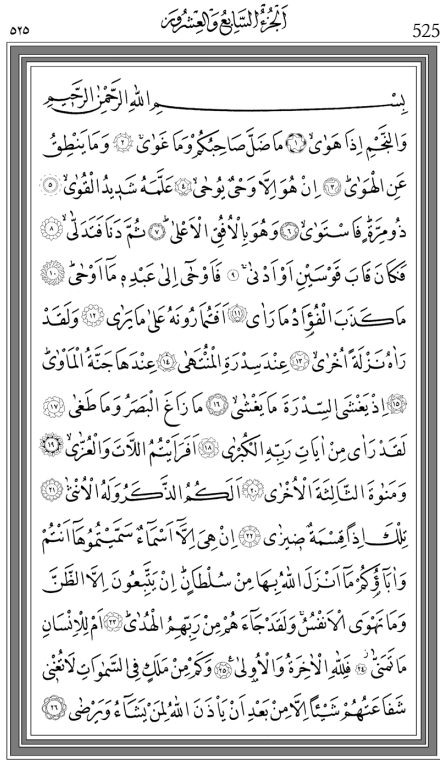 ٥٢٥ اَلْجُزْءُ السَّابِعُ وَالْعِشْرُونَ 525
بِسْمِ اللهِ الرَّحْمٰنِ الرَّحِيمِ
وَالنَّجْمِ اِذَا هَوٰىۙ ﴿١﴾ مَا ضَلَّ صَاحِبُكُمْ وَمَا غَوٰىۚ ﴿٢﴾ وَمَا يَنْطِقُ
عَنِ الْهَوٰىۜ ﴿٣﴾ اِنْ هُوَ اِلَّا وَحْيٌ يُوحٰىۙ ﴿٤﴾ عَلَّمَهُ شَدِيدُ الْقُوٰىۙ ﴿٥﴾
ذُو مِرَّةٍۜ فَاسْتَوٰىۙ ﴿٦﴾ وَهُوَ بِالْاُفُقِ الْاَعْلٰىۜ ﴿٧﴾ ثُمَّ دَنَا فَتَدَلّٰىۙ ﴿٨﴾
فَكَانَ قَابَ قَوْسَيْنِ اَوْ اَدْنٰىۚ ﴿٩﴾ فَاَوْحٰٓى اِلٰى عَبْدِه۪ مَٓا اَوْحٰىۜ ﴿١٠﴾
مَا كَذَبَ الْفُؤٰادُ مَا رَاٰى ﴿١١﴾ اَفَتُمَارُونَهُ عَلٰى مَا يَرٰى ﴿١٢﴾ وَلَقَدْ
رَاٰهُ نَزْلَةً اُخْرٰىۙ ﴿١٣﴾ عِنْدَ سِدْرَةِ الْمُنْتَهٰى ﴿١٤﴾ عِنْدَهَا جَنَّةُ الْمَأْوٰىۜ
﴿١٥﴾ اِذْ يَغْشَى السِّدْرَةَ مَا يَغْشٰىۙ ﴿١٦﴾ مَا زَاغَ الْبَصَرُ وَمَا طَغٰى ﴿١٧﴾
لَقَدْ رَاٰى مِنْ اٰيَاتِ رَبِّهِ الْكُبْرٰى ﴿١٨﴾ اَفَرَاَيْتُمُ اللَّاتَ وَالْعُزّٰىۙ ﴿١٩﴾
وَمَنٰوةَ الثَّالِثَةَ الْاُخْرٰى ﴿٢٠﴾ اَلَكُمُ الذَّكَرُ وَلَهُ الْاُنْثٰى ﴿٢١﴾
تِلْكَ اِذًا قِسْمَةٌ ضِيزٰى ﴿٢٢﴾ اِنْ هِيَ اِلَّٓا اَسْمَٓاءٌ سَمَّيْتُمُوهَٓا اَنْتُمْ
وَاٰبَٓاؤُ۬كُمْ مَٓا اَنْزَلَ اللهُ بِهَا مِنْ سُلْطَانٍۜ اِنْ يَتَّبِعُونَ اِلَّا الظَّنَّ
وَمَا تَهْوَى الْاَنْفُسُۚ وَلَقَدْ جَٓاءَهُمْ مِنْ رَبِّهِمُ الْهُدٰىۜ ﴿٢٣﴾ اَمْ لِلْاِنْسَانِ
مَا تَمَنّٰىۘ ﴿٢٤﴾ فَلِلّٰهِ الْاٰخِرَةُ وَالْاُو۫لٰى۟ ﴿٢٥﴾ وَكَمْ مِنْ مَلَكٍ فِي السَّمٰوَاتِ لَا تُغْن۪ي
شَفَاعَتُهُمْ شَيْـًٔا اِلَّا مِنْ بَعْدِ اَنْ يَأْذَنَ اللهُ لِمَنْ يَشَٓاءُ وَيَرْضٰى ﴿٢٦﴾